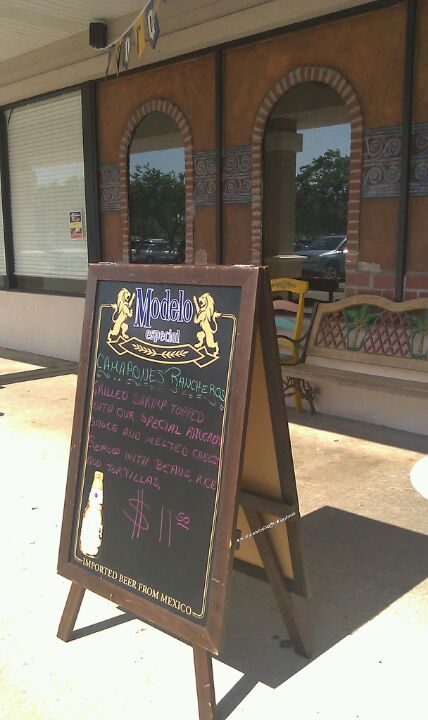 Modelo
especial
CAMARONES RANCHEROS
GRILLED SHRIMP TOPPED
WITH OUR SPECIAL RANCHERO
SAUCE AND MELTED CHEESE
SERVED WITH BEANS, RICE
AND TORTILLAS
$11.50
IMPORTED BEER FROM MEXICO